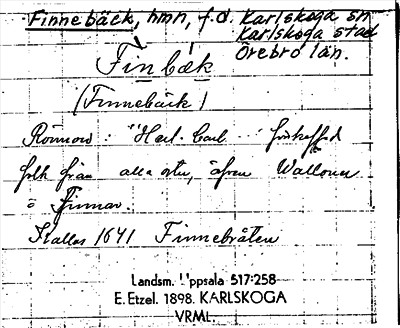 Finnebäck, hmn, f.d. Karlskoga sn
Karlskoga stad
Örebro län.
Finbæk
(Finnebäck)
Rönnow: "Hert. Carl ... förskaffad
folk från alla orter, äfven Walloner
o Finnar.
Kallas 1641 Finnebråten
Landsm. Uppsala 517:258
E. Etzel. 1898. KARLSKOGA
VRML.